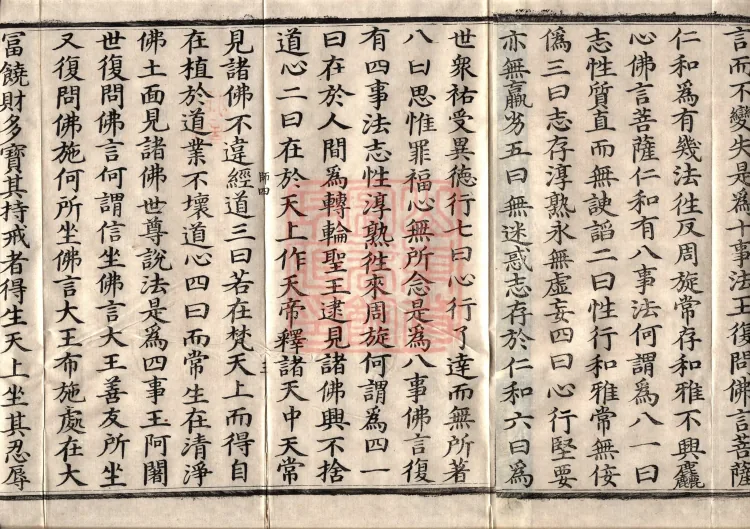 言而不變失是為十事法王復問佛言菩薩
仁和為有幾法往反周旋常存和雅不興麤
心佛言菩薩仁和有八事法何謂為八一曰
志性質直而無諛諂二曰性行和雅常無佞
偽三曰志存淳熟永無虛妄四曰心行堅要
亦無羸劣五曰無迷惑志存於仁和六曰為
世眾祐受異德行七曰心行了達而無所著
八曰思惟罪福心無所念是為八事佛言復
有四事法志性淳熟往來周旋何謂為四一
曰在於人間為轉輪聖王逮見諸佛興不捨
道心二曰在於天上作天帝釋諸天中天常
師四
見諸佛不違經道三曰若在梵天上而得自
在植於道業不壞道心四曰而常生在清淨
佛土面見諸佛世尊說法是為四事王阿闍
世復問佛言何謂信坐佛言大王善友所坐
又復問佛施何所坐佛言大王布施處在大
富饒財多寶其持戒者得生天上坐其忍辱